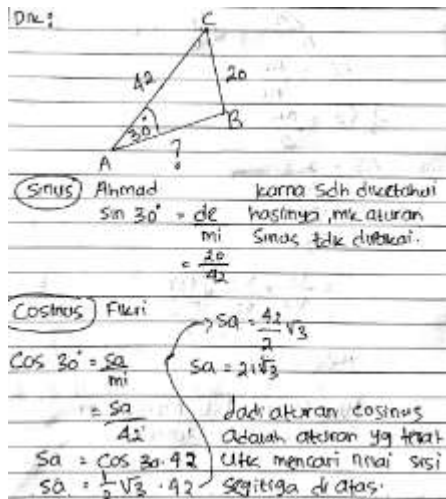 Dik:
C
42
20
30°
B
A
?
Sinus Ahmad
sin 30° = de/mi
= 20/42
karna sdh diketahui
hasilnya, mk aturan
Sinus tdk dipakai.
Cosinus Fikri
Cos 30° = sa/mi
= sa/42
Sa = cos 30 . 42
sa = 1/2 √3 . 42
→ sa = 42/2 √3
sa = 21√3
Jadi aturan cosinus
adalah aturan yg tepat
utk mencari nilai sisi
segitiga di atas.